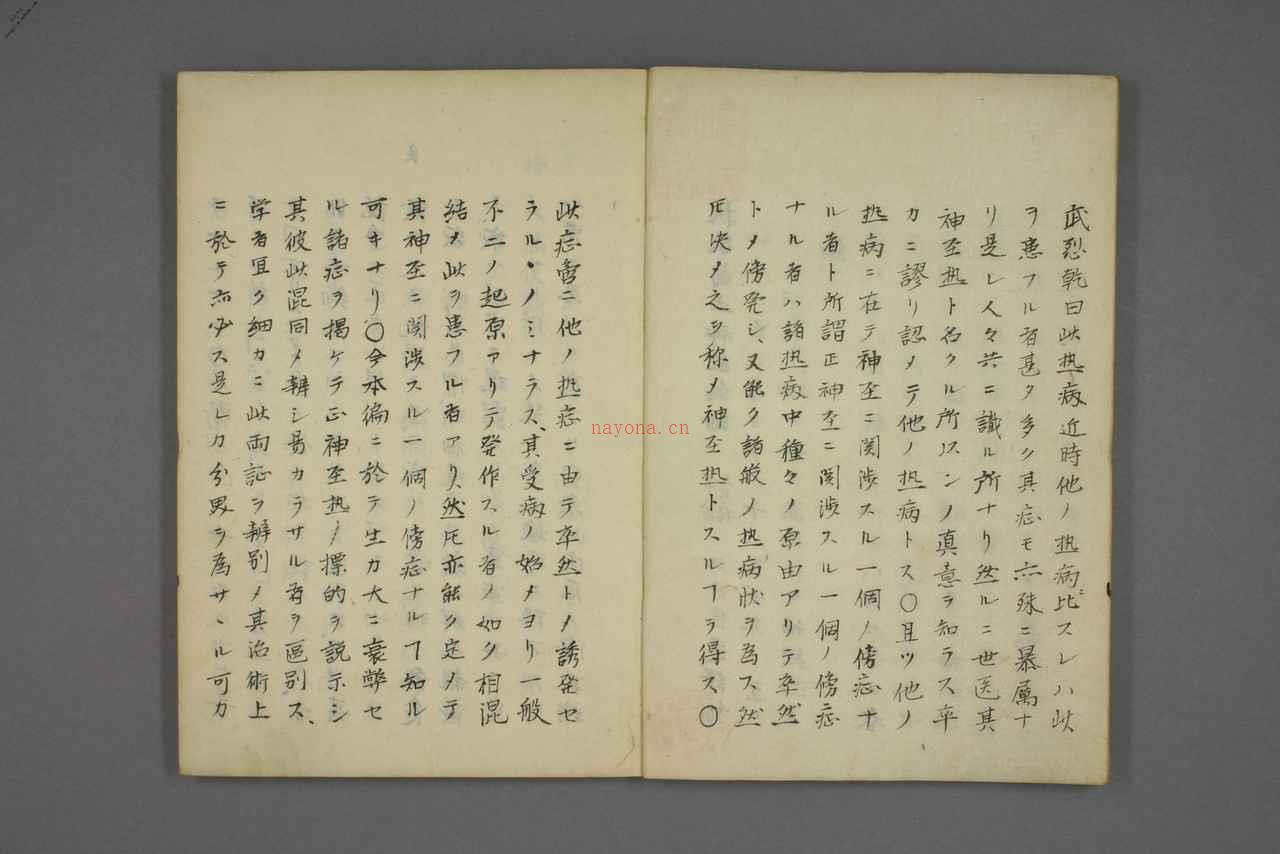 武烈乾曰此热病近時他ノ热病比スレハ此
ヲ患フル者甚タ多ク其症モ亦殊ニ暴厲ナ
リ是レ人々共ニ識ル所ナリ然ルニ世医其
神至热ト名クル所以ンノ真意ヲ知ラス卒
カニ謬リ認メテ他ノ热病トス〇且ツ他ノ
热病ニ在テ神至ニ関渉スル一個ノ傍症ナ
ル者ト所謂正神至ニ関渉スル一個ノ傍症
ナル者ハ諸热病中種々ノ原由アリテ卒然
トメ傍発シ、又能ク諸般ノ热病状ヲ為ス然
圧决メ之ヲ称メ神至热トスルヿヲ得ス〇
此症啻ニ他ノ热症ニ由テ卒然トメ誘発セ
ラルヽノミナラス、其受病ノ始メヨリ一般
不二ノ起原アリテ発作スル者ノ如ク相混
結メ此ヲ患フル者アリ、然圧亦能ク定メテ
其神至ニ関渉スル一個ノ傍症ナルヿ知ル
可キナリ〇今本編ニ於テ生力大ニ衰弊セ
ル諸症ヲ掲ケテ正神至热ノ標的ヲ説示シ
其彼此混同メ辨シ易カラサル者ヲ區別ス、
学者宜ク細カニ此両証ヲ辨別メ其治術上
ニ於テ亦必ス是レカ分界ヲ為サヽル可カ
nayona.cn